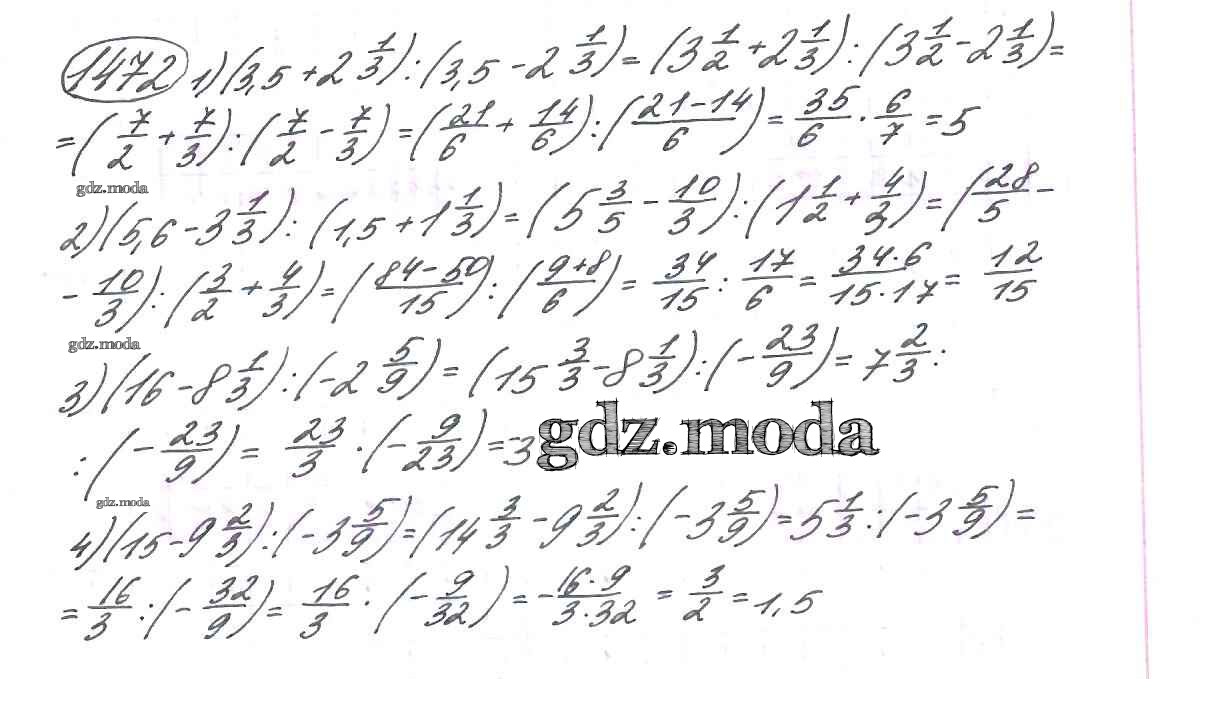 1472 1) (3,5 + 2 1/3) : (3,5 - 2 1/3) = (3 1/2 + 2 1/3) : (3 1/2 - 2 1/3) =
= (7/2 + 7/3) : (7/2 - 7/3) = (21/6 + 14/6) : ((21-14)/6) = 35/6 · 6/7 = 5
gdz.moda
2) (5,6 - 3 1/3) : (1,5 + 1 1/3) = (5 3/5 - 10/3) : (1 1/2 + 4/3) = (28/5 -
- 10/3) : (3/2 + 4/3) = ((84-50)/15) : ((9+8)/6) = 34/15 : 17/6 = (34·6)/(15·17) = 12/15
gdz.moda
3) (16 - 8 1/3) : (-2 5/9) = (15 3/3 - 8 1/3) : (- 23/9) = 7 2/3 :
: (- 23/9) = 23/3 · (- 9/23) = -3
gdz.moda
gdz.moda
4) (15 - 9 2/3) : (-3 5/9) = (14 3/3 - 9 2/3) : (-3 5/9) = 5 1/3 : (-3 5/9) =
= 16/3 : (- 32/9) = 16/3 · (- 9/32) = - (16·9)/(3·32) = 3/2 = 1,5